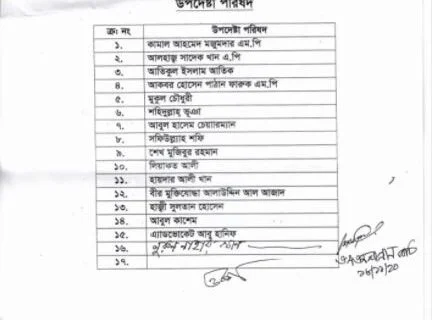 উপদেষ্টা পরিষদ
ক্র: নং উপদেষ্টা পরিষদ
১. কামাল আহমেদ মজুমদার এম.পি
২. আলহাজ্ব সাদেক খান এ.পি
৩. আতিকুল ইসলাম আতিক
৪. আকবর হোসেন পাঠান ফারুক এম.পি
৫. মুকুল চৌধুরী
৬. শহিদুল্লাহ্ ভূঞা
৭. আবুল হাসেম চেয়ারম্যান
৮. সফিউল্ল্যাহ শফি
৯. শেখ মুজিবুর রহমান
১০. লিয়াকত আলী
১১. হায়দার আলী খান
১২. বীর মুক্তিযোদ্ধা আলাউদ্দিন আল আজাদ
১৩. হাজ্বী সুলতান হোসেন
১৪. আবুল কাশেম
১৫. এ্যাডভোকেট আবু হানিফ
১৬.
১৭.
১৮/১১/২০